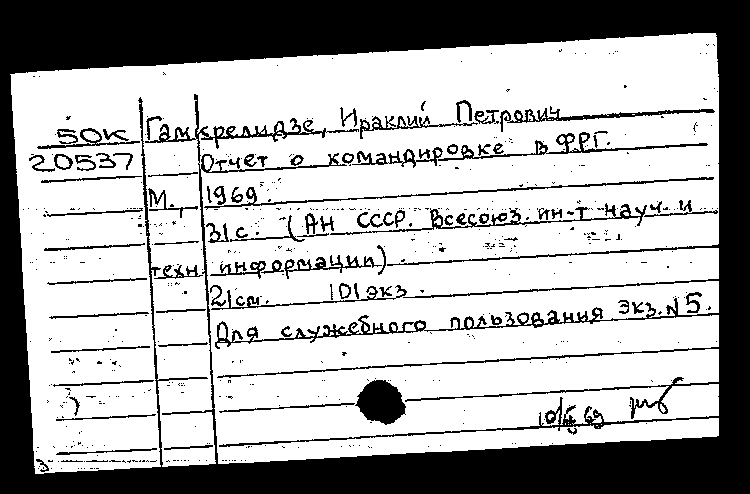 50К Гамкрелидзе, Ираклий Петрович
20537 Отчет о командировке в ФРГ.
М., 1969.
31с. (АН СССР. Всесоюз. ин-т науч. и
техн. информации).
21см. 101экз.
Для служебного пользования экз. N5.
69